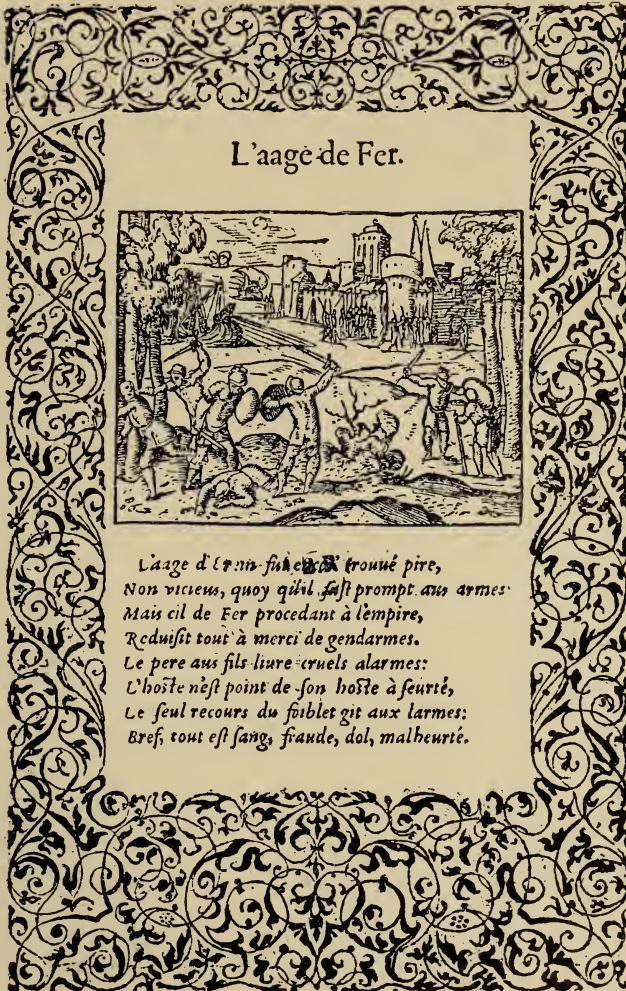 L'aage de Fer.
L'aage d'Erain fut trouué pire,
Non vicieus, quoy qu'il fust prompt aus armes
Mais cil de Fer procedant à l'empire,
Reduisit tout à merci de gendarmes.
Le pere aus fils liure cruels alarmes:
L'hoste n'est point de son hoste à seurté,
Le seul recours du foiblet git aux larmes:
Bref, tout est sang, fraude, dol, malheurté.